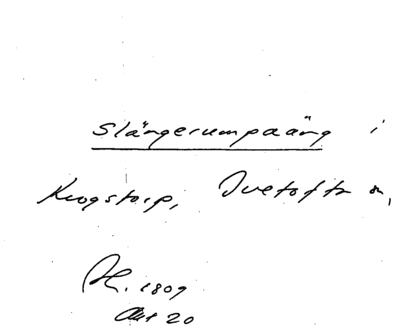 Slängerumpaäng i
Krogstorp, Ivetofta sn,
Ah. 1809
Akt 20